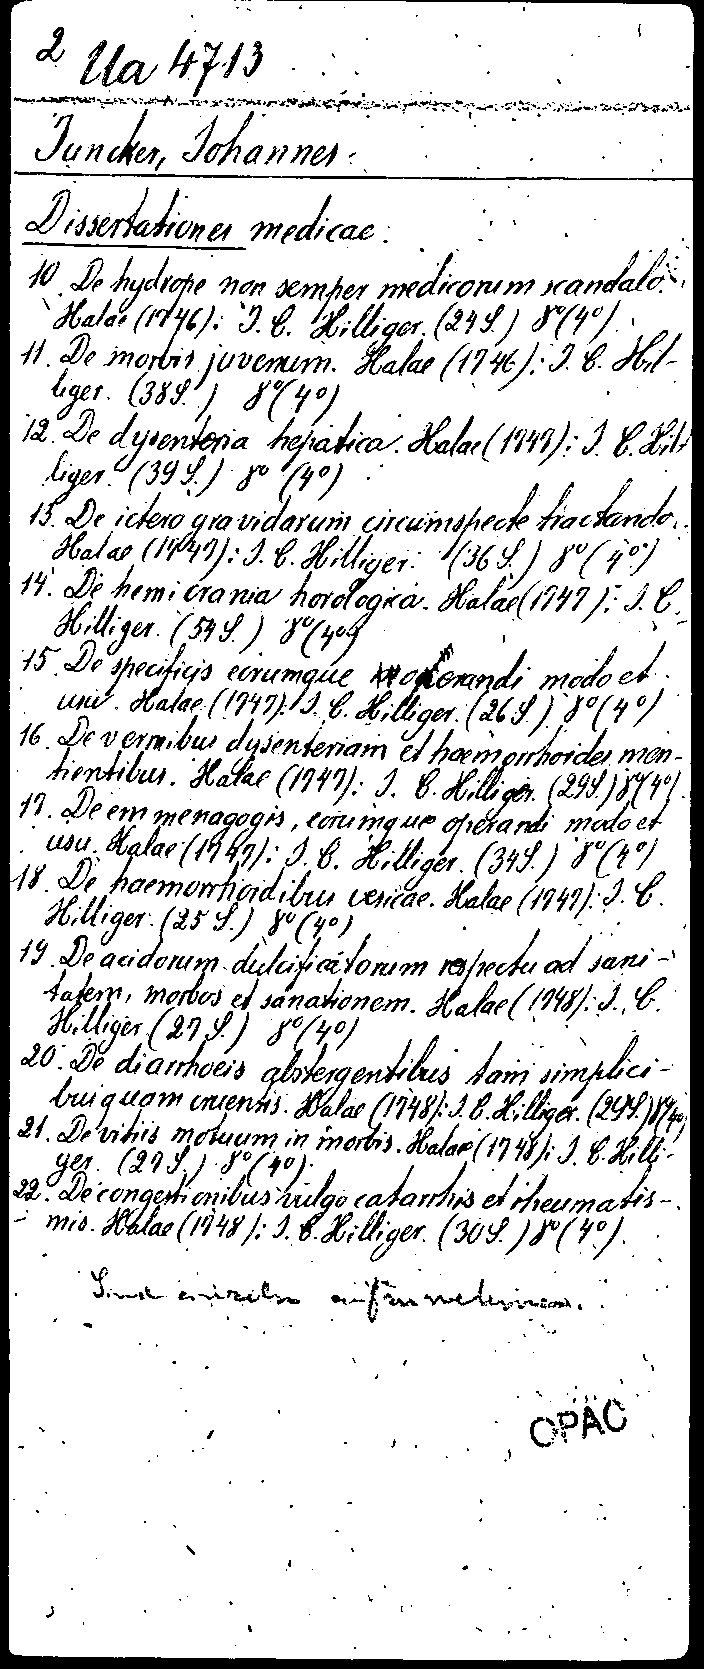 2 Ua 4713
Juncker, Johannes.
Dissertationes medicae.
10. De hydrope non semper medicorum scandalo.
Halae (1746): J. C. Hilliger. (24 S.) 8° (4°)
11. De morbis juvenum. Halae (1746): J. C. Hil-
liger. (38 S.) 8° (4°)
12. De dysenteria hepatica. Halae (1747): J. C. Hil-
liger. (39 S.) 8° (4°)
13. De ictero gravidarum circumspecte tractando.
Halae (1747): J. C. Hilliger. (36 S.) 8° (4°)
14. De hemicrania horologica. Halae (1747): J. C.
Hilliger. (54 S.) 8° (4°)
15. De specificis eorumque operandi modo et
usu. Halae (1747): J. C. Hilliger. (26 S.) 8° (4°)
16. De vermibus dysenteriam et haemorrhoides men-
tientibus. Halae (1747): J. C. Hilliger. (29 S.) 8° (4°).
17. De emmenagogis, eorumque operandi modo et
usu. Halae (1747): J. C. Hilliger. (34 S.) 8° (4°)
18. De haemorrhoidibus vesicae. Halae (1747): J. C.
Hilliger. (25 S.) 8° (4°)
19. De acidorum dulcificatorum respectu ad sani-
tatem, morbos et sanationem. Halae (1748): J. C.
Hilliger (27 S.) 8° (4°)
20. De diarrhoeis abstergentibus tam simplici-
bus quam cruentis. Halae (1748): J. C. Hilliger. (29 S.) 8° (4°)
21. De vitiis motuum in morbis. Halae (1748): J. C. Hilli-
ger. (27 S.) 8° (4°).
22. De congestionibus vulgo catarrhis et rheumatis-
mis. Halae (1748): J. C. Hilliger. (30 S.) 8° (4°).
Sind einzeln aufzunehmen.
OPAC